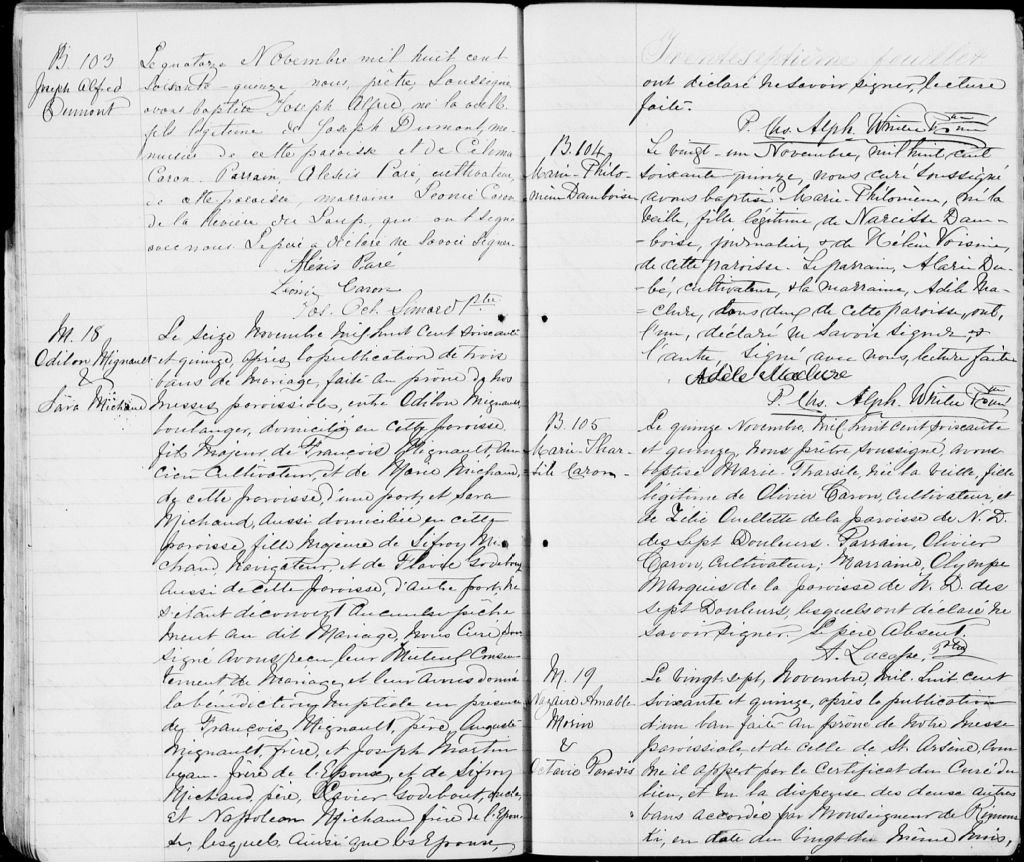 B. 103
Joseph Alfred
Dumont
Le quatorze Novembre mil huit cent
soixante-quinze nous, prêtre, soussigné
avons baptisé Joseph Alfred, né la veille
fils légitime de Joseph Dumont, me-
nuisier de cette paroisse et de Celima
Caron. Parrain, Alexis Paré, cultivateur,
de cette paroisse, marraine Léonie Caron
de la Rivière du Loup, qui ont signé
avec nous. Le père a déclaré ne savoir signer.
Alexis Paré
Léonie Caron
Jos. Oct. Simard Ptre
M. 18
Odilon Mignault
&
Sara Michaud
Le seize Novembre mil huit cent soixante
et quinze, après la publication de trois
bans de mariage, faite au prône de nos
messes paroissiales, entre Odilon Mignault,
boulanger, domicilié en cette paroisse
fils majeur de François Mignault, An-
cien Cultivateur, et de Marie Michaud,
de cette paroisse, d'une part, et Sara
Michaud, aussi domiciliée en cette
paroisse, fille majeure de Sifroy Mi-
chaud, Navigateur, et de Flavie Godebout
aussi de cette paroisse, d'autre part, ne
s'étant découvert aucun empêche-
ment au dit Mariage, Nous Curé sous-
signé avons reçu leur Mutuel Consen-
tement de Mariage, et leur avons donné
la bénédiction nuptiale en présence
de François Mignault, père, Auguste
Mignault, frère, et Joseph Martin
beau-frère de l'Epoux, et de Sifroy
Michaud, père, Xavier Godebout, oncle,
et Napoléon Michaud frère de l'Epou-
se, lesquels ainsi que les Epoux,
Trente septième feuillet
ont déclaré ne savoir signer, lecture
faite.
P. Chs. Alph. Winter Ptre Curé
B. 104
Marie-Philo-
mène Damboise
Le vingt-un Novembre, mil huit cent
soixante quinze, nous curé soussigné
avons baptisé Marie-Philomène, née la
veille, fille légitime de Narcisse Dam-
-boise, journalier, & de Hélène Voisine,
de cette paroisse. Le parrain, Alarie Du-
-bé, cultivateur, & la marraine, Adèle Ma-
clure, tous deux de cette paroisse, ont,
l'un, déclaré ne savoir signer &
l'autre, signé avec nous, lecture faite
Adèle Maclure
P. Chs. Alph. Winter Ptre Curé
B. 105
Marie-Thar-
sile Caron
Le quinze Novembre, mil huit cent soixante
et quinze, Nous prêtre soussigné, avons
baptisé Marie Tharsile, née la veille, fille
légitime de Olivier Caron, cultivateur, et
de Zélie Ouellette de la paroisse de N. D.
des Sept Douleurs. Parrain, Olivier
Caron, Cultivateur; Marraine, Olympe
Marquis de la paroisse de N. D. des
Sept Douleurs, lesquels ont déclaré ne
savoir signer. Le père absent.
A. Lacasse, Ptre
M. 19
Nazaire Amable
Morin
&
Octavie Paradis
Le vingt sept, Novembre, mil huit cent
soixante et quinze, après la publication
d'un ban faite au prône de notre messe
paroissiale et de celle de St. Arsène, com-
me il appert par le certificat du Curé du
lieu, et vu la dispense des deux autres
bans accordée par Monseigneur de Rimous-
ki, en date du vingt du même mois,